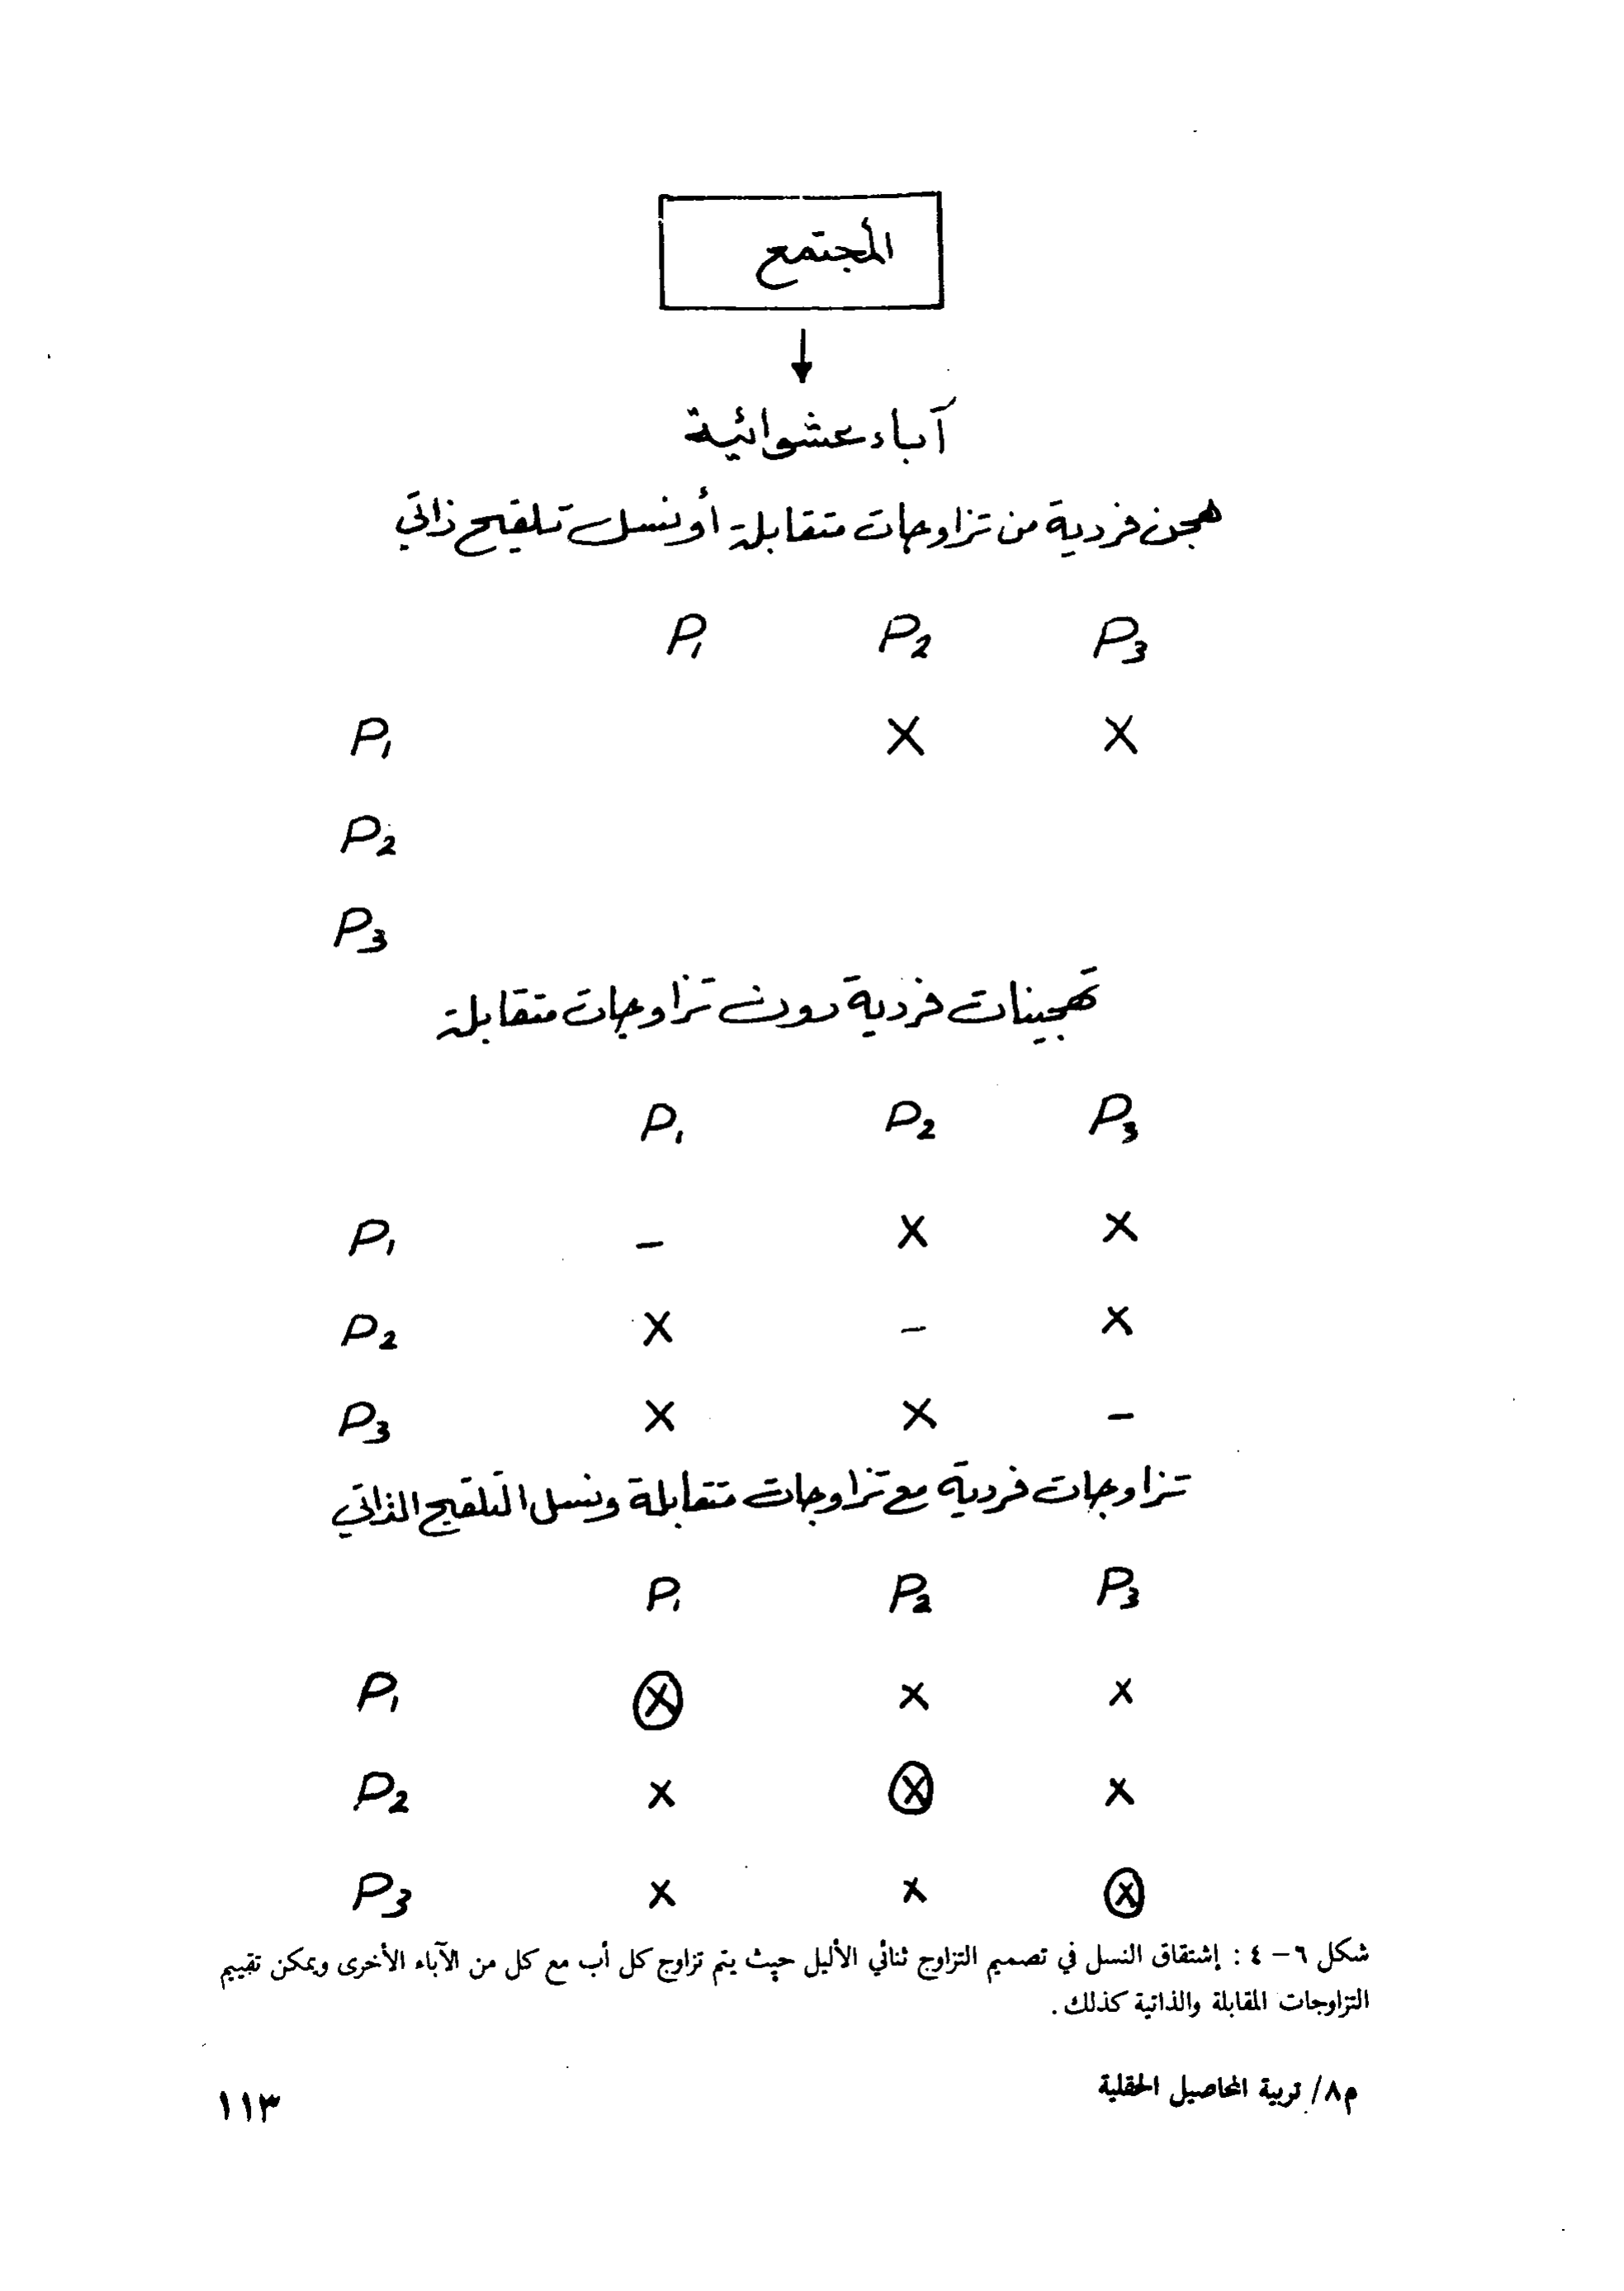 المجتمع
آباء عشوائية
هجن فردية من تزاوجات متقابلة أو نسل تلقيح ذاتي
P₁ P₂ P₃
P₁ X X
P₂
P₃
تهجينات فردية دون تزاوجات متقابلة
P₁ P₂ P₃
P₁ – X X
P₂ X – X
P₃ X X –
تزاوجات فردية مع تزاوجات متقابلة ونسل التلقيح الذاتي
P₁ P₂ P₃
P₁ ⓧ x x
P₂ x ⓧ x
P₃ x x ⓧ
شكل ٦ – ٤ : إشتقاق النسل في تصميم التزاوج ثنائي الأليل حيث يتم تزاوج كل أب مع كل من الآباء الأخرى ويمكن تقييم
التزاوجات المقابلة والذاتية كذلك .
م٨/ تربية المحاصيل الحقلية
١١٣